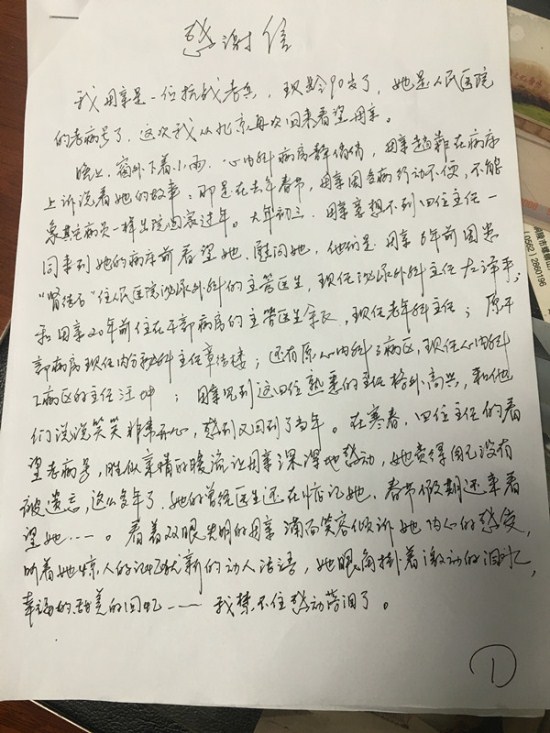 感谢信
我母亲是一位抗战老兵，现龄90岁了，她是人民医院
的老病号了，这次我从北京再次回来看望母亲。
晚上，窗外下着小雨，心内科病房静悄悄，母亲靠在病床
上诉说着她的故事：那是在去年春节，母亲因患病行动不便，不能
象其它病员一样出院回家过年。大年初三，母亲意想不到四位主任一
同来到她的病床前看望她、慰问她，他们是：母亲8年前因患
"肾结石"住人民医院泌尿外科的主管医生，现任泌尿外科主任左泽平；
和母亲20年前住在干部病房的主管医生余，现任老年科主任；原干
部病房现任内分泌科主任章传楼；还有原心内科3病区，现任心内科
2病区的主任汪；母亲见到这四位熟悉的主任格外高兴，和他
们说说笑笑非常开心，感到又回到了当年。在寒春，四位主任的看
望老病号，胜似亲情的暖流让母亲深深地感动，她觉得自己没有
被遗忘，这么多年了，她的曾经医生还在惦记她，春节假期还来看
望她……。看着双眼失明的母亲满面笑容倾诉她内心的感受，
听着她惊人的记忆犹新的动人话语，她眼角挂着激动的泪水，
幸福的甜美的回忆……我禁不住感动落泪了。
1
0562)2860196